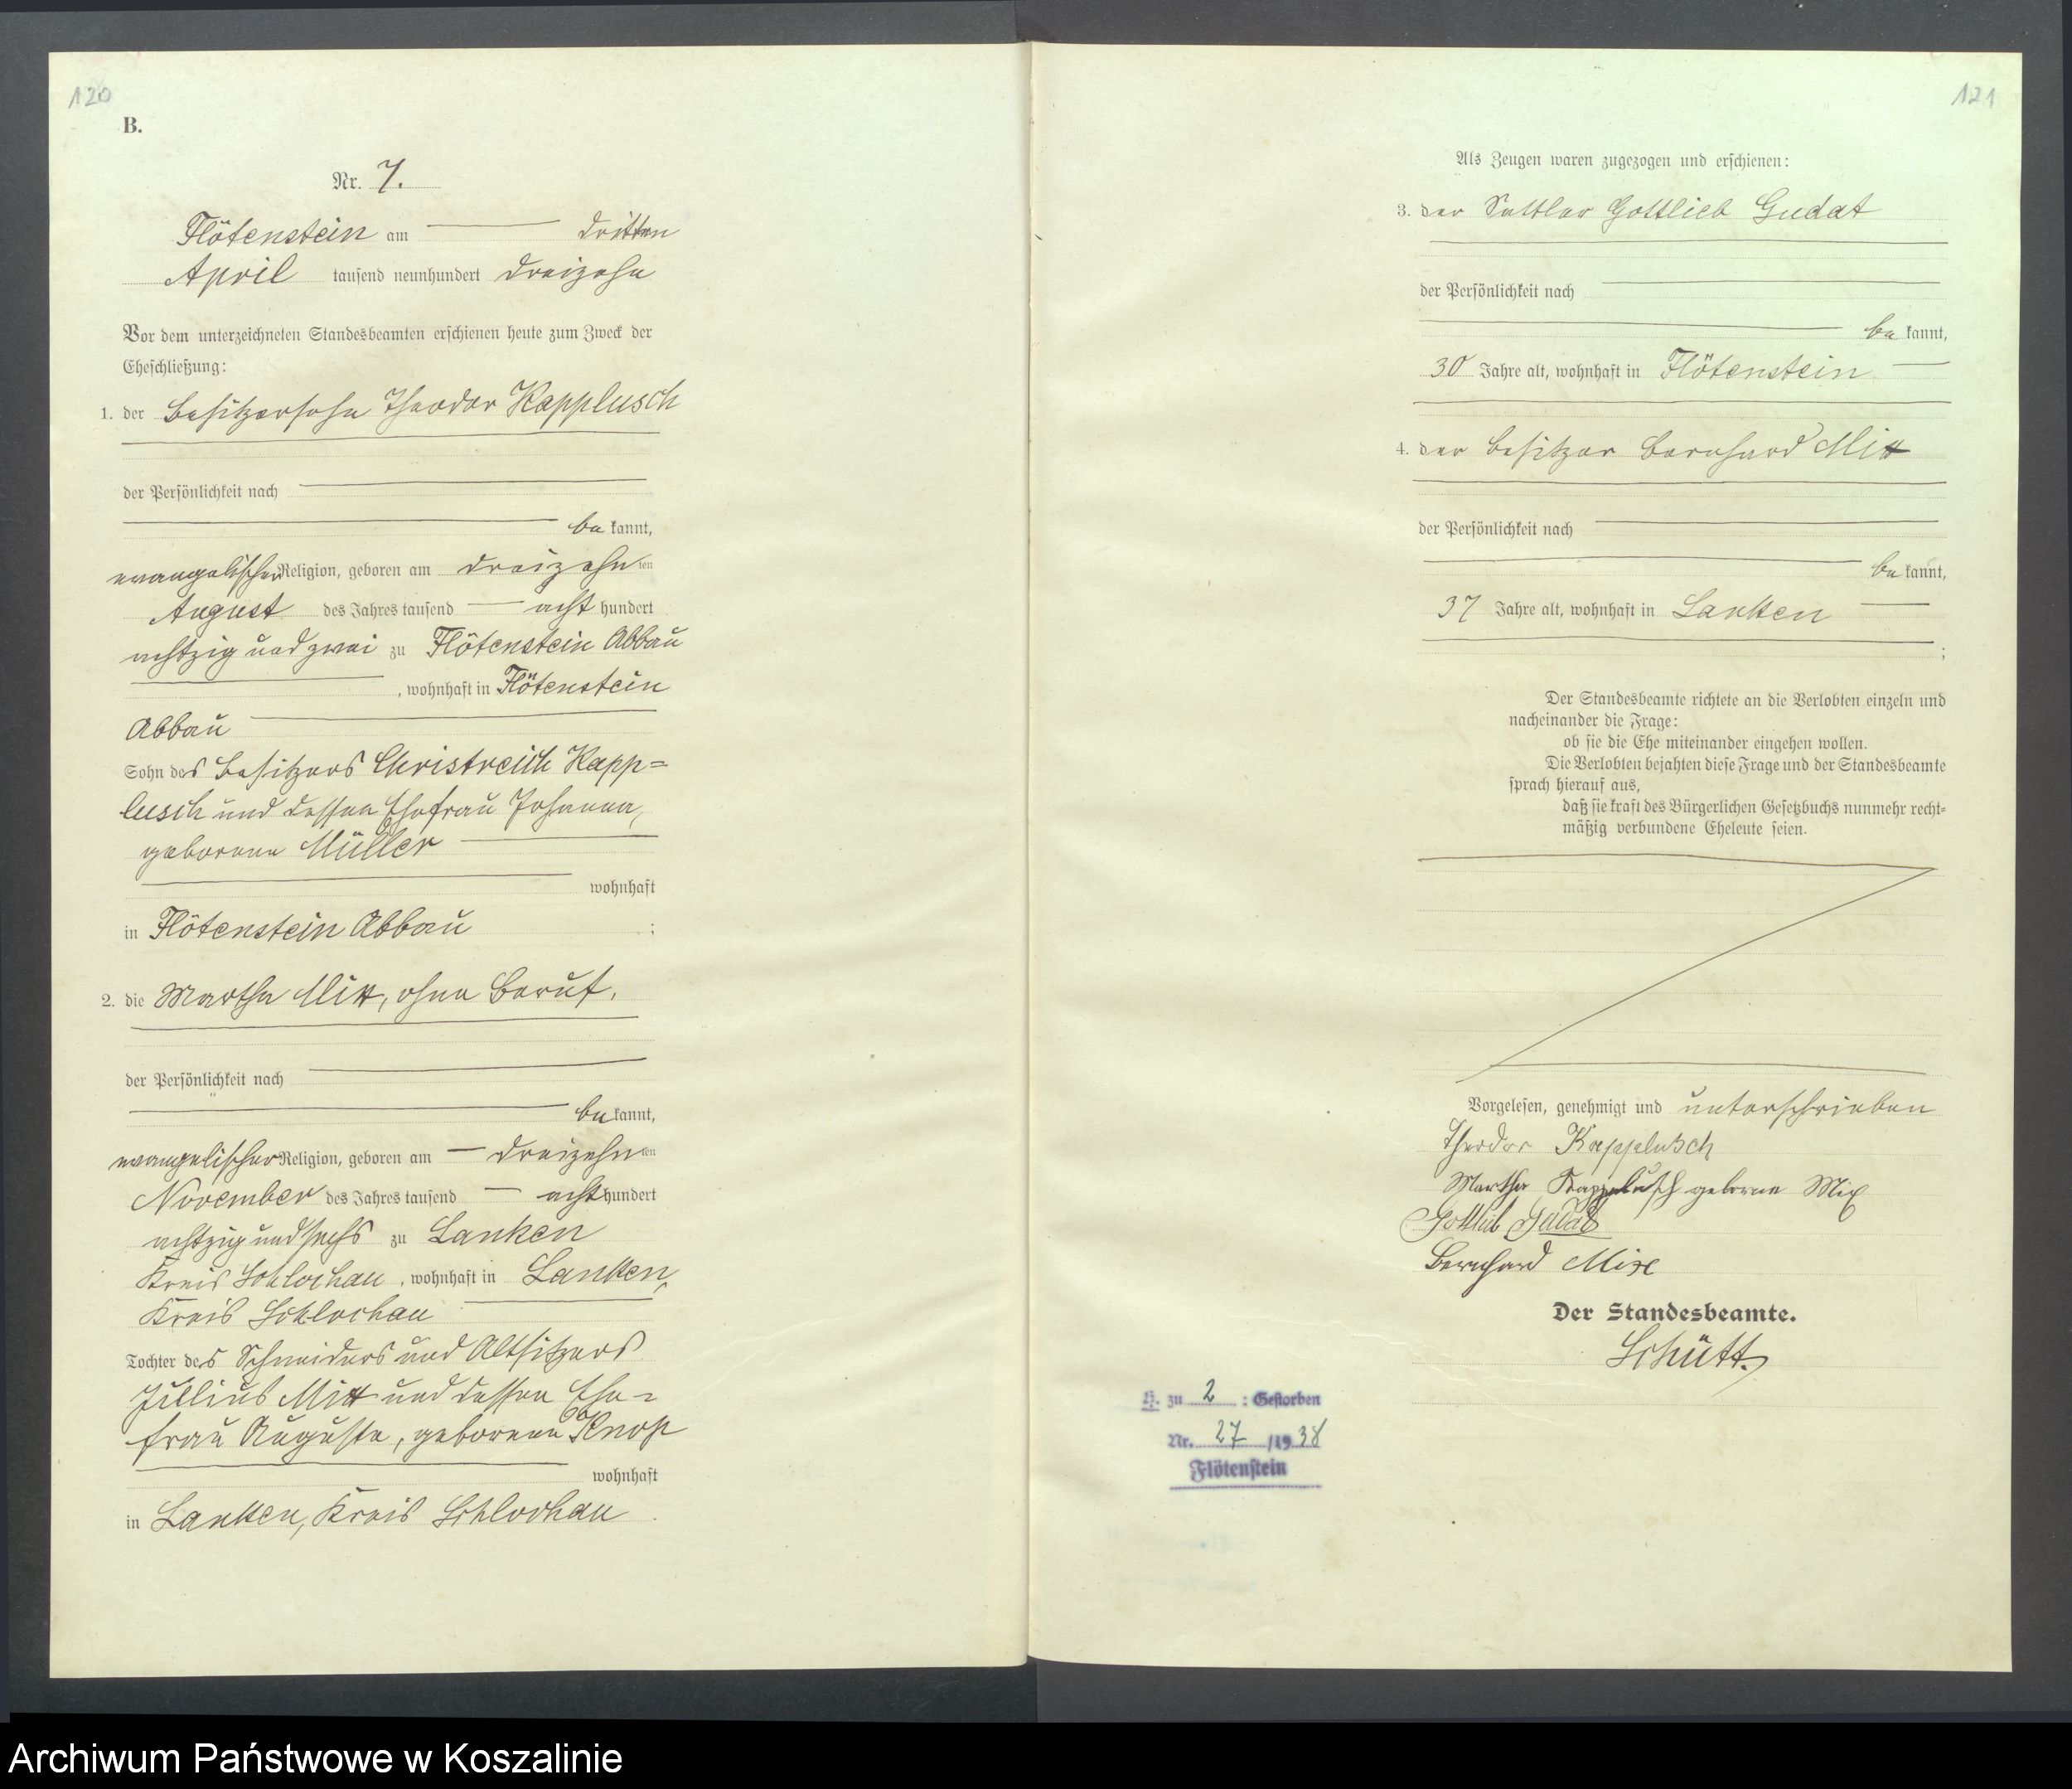 120
B.
Nr. 7.
Flötenstein am dritten
April tausend neunhundert dreizehn
Vor dem unterzeichneten Standesbeamten erschienen heute zum Zweck der
Eheschließung:
1. der Besitzersohn Theodor Kapplusch
der Persönlichkeit nach
be kannt,
evangelischer Religion, geboren am dreizehn ten
August des Jahres tausend acht hundert
achtzig und zwei zu Flötenstein Abbau
, wohnhaft in Flötenstein
Abbau
Sohn des Besitzers Christreich Kapp=
lusch und dessen Ehefrau Johanna,
geborene Müller
wohnhaft
in Flötenstein Abbau ;
2. die Martha Mix, ohne Beruf,
der Persönlichkeit nach
be kannt,
evangelischer Religion, geboren am dreizehn ten
November des Jahres tausend acht hundert
achtzig und sechs zu Lanken
Kreis Schlochau, wohnhaft in Lanken,
Kreis Schlochau
Tochter des Schneiders und Altsitzers
Julius Mix und dessen Ehe=
frau Auguste, geborene Knop
wohnhaft
in Lanken, Kreis Schlochau .
121
Als Zeugen waren zugezogen und erschienen:
3. der Sattler Gottlieb Gudat
der Persönlichkeit nach
be kannt,
30 Jahre alt, wohnhaft in Flötenstein
4. der Besitzer Bernhard Mix
der Persönlichkeit nach
be kannt,
37 Jahre alt, wohnhaft in Lanken
;
Der Standesbeamte richtete an die Verlobten einzeln und
nacheinander die Frage:
ob sie die Ehe miteinander eingehen wollen.
Die Verlobten bejahten diese Frage und der Standesbeamte
sprach hierauf aus,
daß sie kraft des Bürgerlichen Gesetzbuchs nunmehr recht=
mäßig verbundene Eheleute seien.
Vorgelesen, genehmigt und unterschrieben
Theodor Kappelusch
Martha Kappelusch geborene Mix
Gottlieb Gudat
Bernhard Mix
Der Standesbeamte.
Schütt.
H. zu 2 : Gestorben
Nr. 27 /19 38
Flötenstein
Archiwum Państwowe w Koszalinie